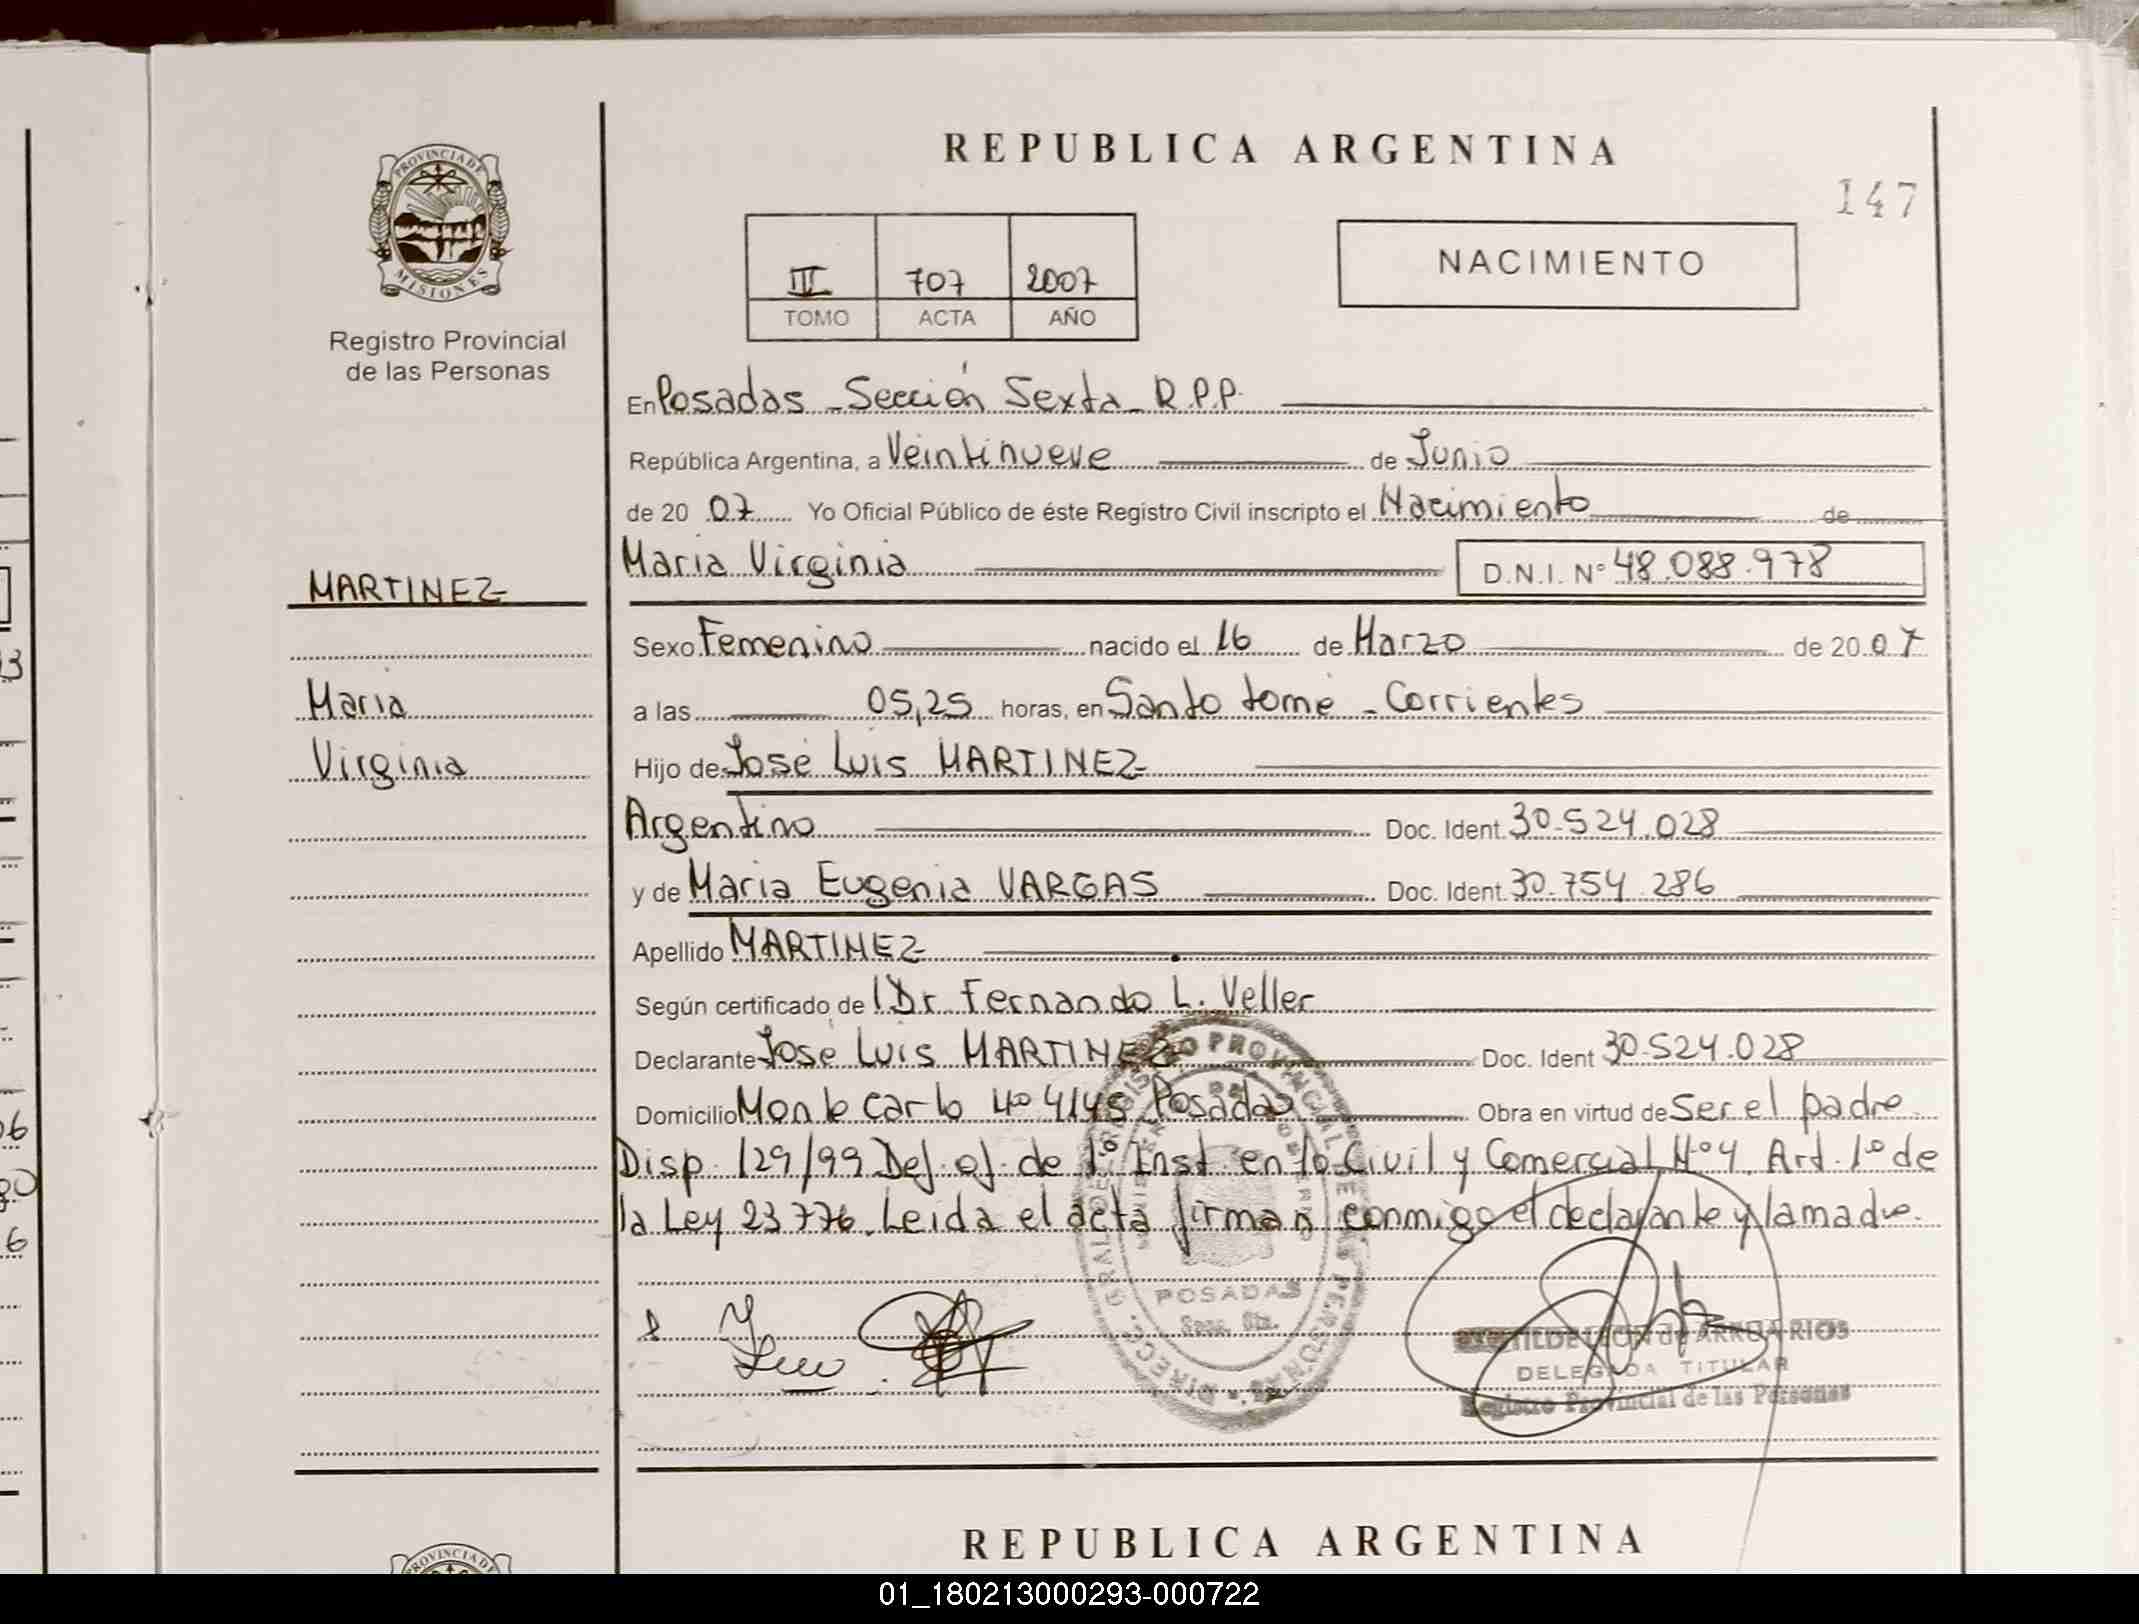 REPUBLICA ARGENTINA
147
PROVINCIA DE
MISIONES
Registro Provincial
de las Personas
III 707 2007
TOMO ACTA AÑO
NACIMIENTO
En Posadas - Sección Sexta - R.P.P.
República Argentina, a Veintinueve de Junio
de 20 07 Yo Oficial Público de éste Registro Civil inscripto el Nacimiento de
MARTINEZ
Maria Virginia D.N.I. N° 48.088.978
Sexo Femenino nacido el 16 de Marzo de 20 07
Maria
a las 05,25 horas, en Santo tomé - Corrientes
Virginia
Hijo de José Luis MARTINEZ
Argentino Doc. Ident. 30.524.028
y de Maria Eugenia VARGAS Doc. Ident. 30.754.286
Apellido MARTINEZ
Según certificado de Dr Fernando L. Veller
Declarante José Luis MARTINEZ Doc. Ident 30.524.028
Domicilio Monte Carlo 4145 Posadas Obra en virtud de Ser el padre
Disp. 129/99 Def. of. de 1º Inst. en lo Civil y Comercial Nº 4. Art. 1º de
la Ley 23776. Leida el acta firman conmigo el declarante y la madre.
DIREC. GRAL. DE REGISTRO PROVINCIAL DE LAS PERSONAS
POSADAS
Secc. 6ta.
de ARRUA RIOS
DELEGADA TITULAR
Registro Provincial de las Personas
REPUBLICA ARGENTINA
PROVINCIA DE
01_180213000293-000722